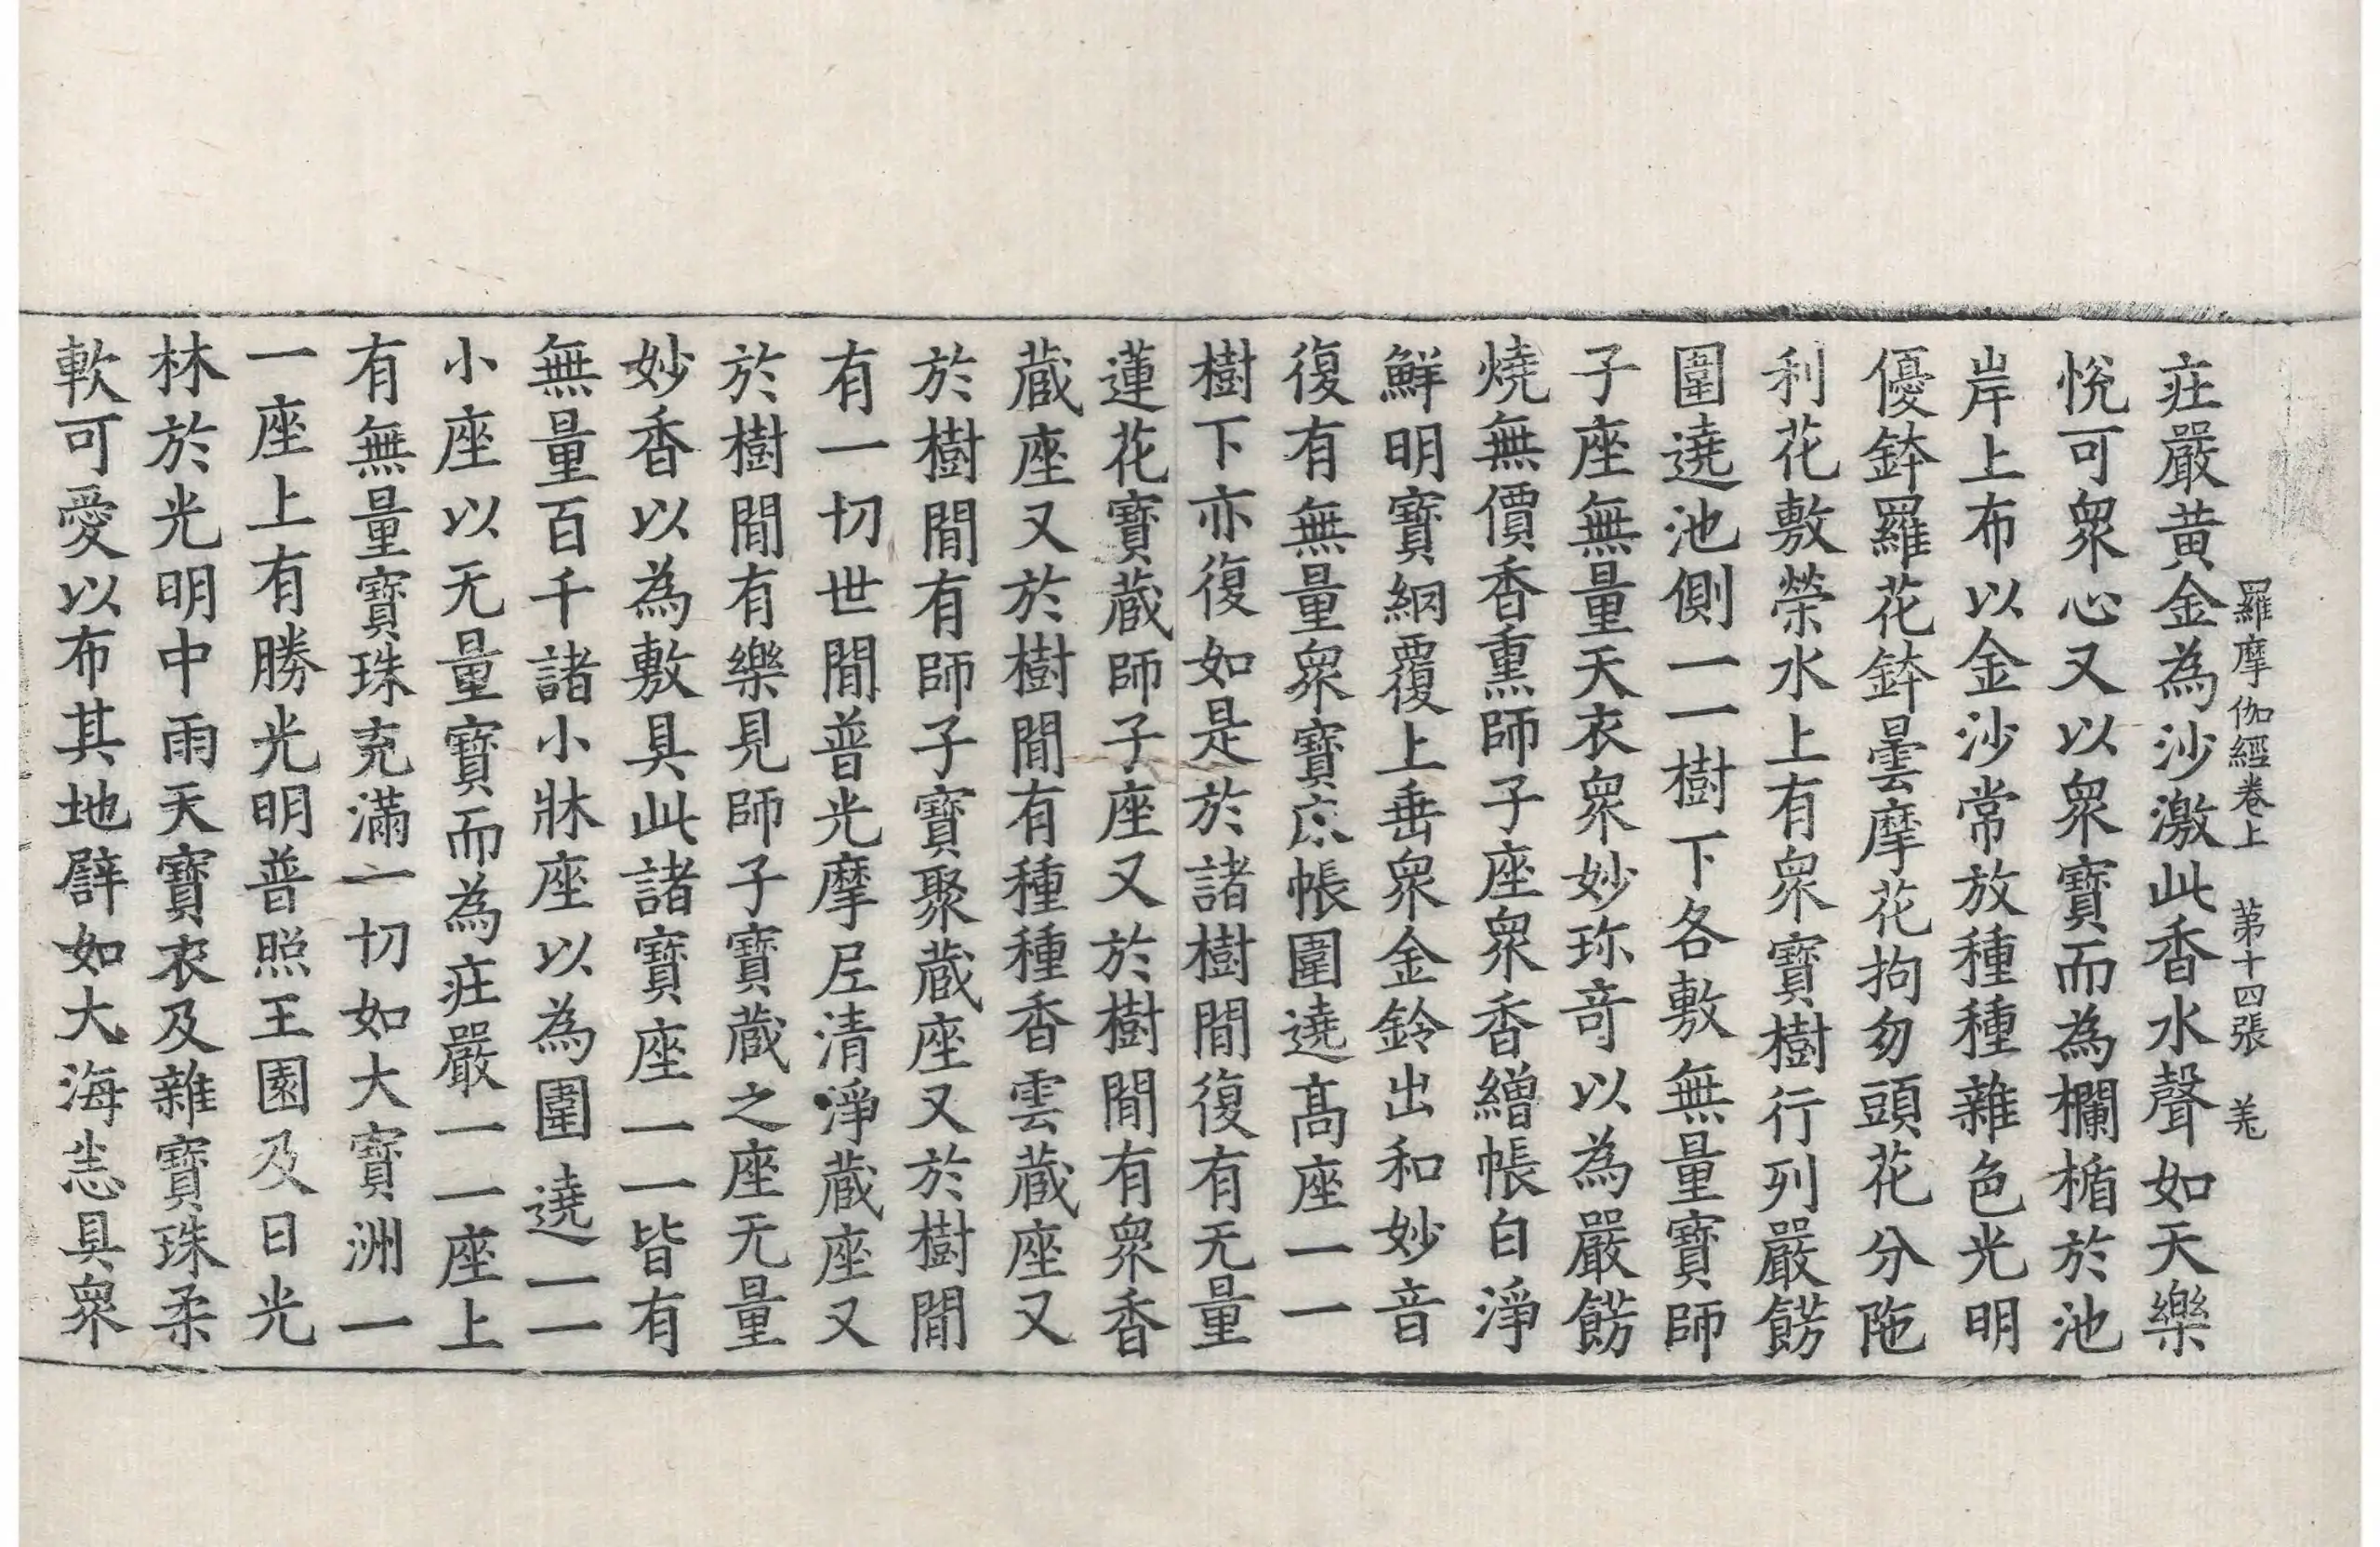 羅摩伽經卷上 第十四張 羗
莊嚴黃金為沙激此香水聲如天樂
悅可衆心又以衆寶而為欄楯於池
岸上布以金沙常放種種雜色光明
優鉢羅花鉢曇摩花拘勿頭花分陁
利花敷榮水上有衆寶樹行列嚴餝
圍遶池側一一樹下各敷無量寶師
子座無量天衣衆妙珎奇以為嚴餝
燒無價香熏師子座衆香繒帳白淨
鮮明寶網覆上垂衆金鈴出和妙音
復有無量衆寶床帳圍遶高座一一
樹下亦復如是於諸樹間復有无量
蓮花寶蔵師子座又於樹間有衆香
蔵座又於樹間有種種香雲蔵座又
於樹間有師子寶聚蔵座又於樹間
有一切世間普光摩尼清淨蔵座又
於樹間有樂見師子寶蔵之座无量
妙香以為敷具此諸寶座一一皆有
無量百千諸小牀座以為圍遶一一
小座以无量寶而為莊嚴一一座上
有無量寶珠充滿一切如大寶洲一
一座上有勝光明普照王園及日光
林於光明中雨天寶衣及雜寶珠柔
軟可愛以布其地譬如大海悉具衆